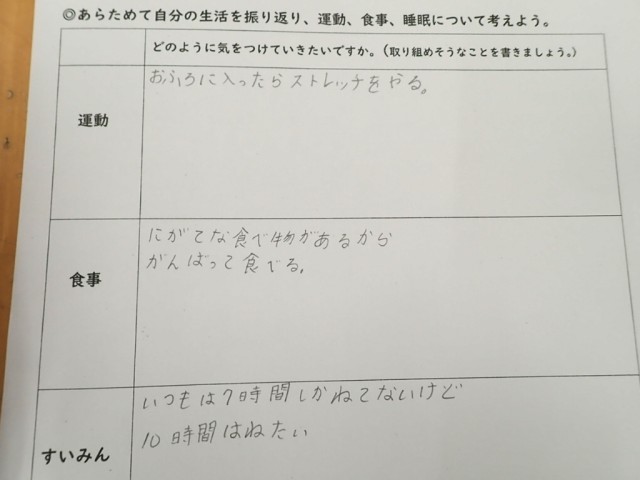 ◎あらためて自分の生活を振り返り、運動、食事、睡眠について考えよう。
どのように気をつけていきたいですか。（取り組めそうなことを書きましょう。）
運動
おふろに入ったらストレッチをやる。
食事
にがてな食べ物があるから
がんばって食べる。
すいみん
いつもは7時間しかねてないけど
10時間はねたい